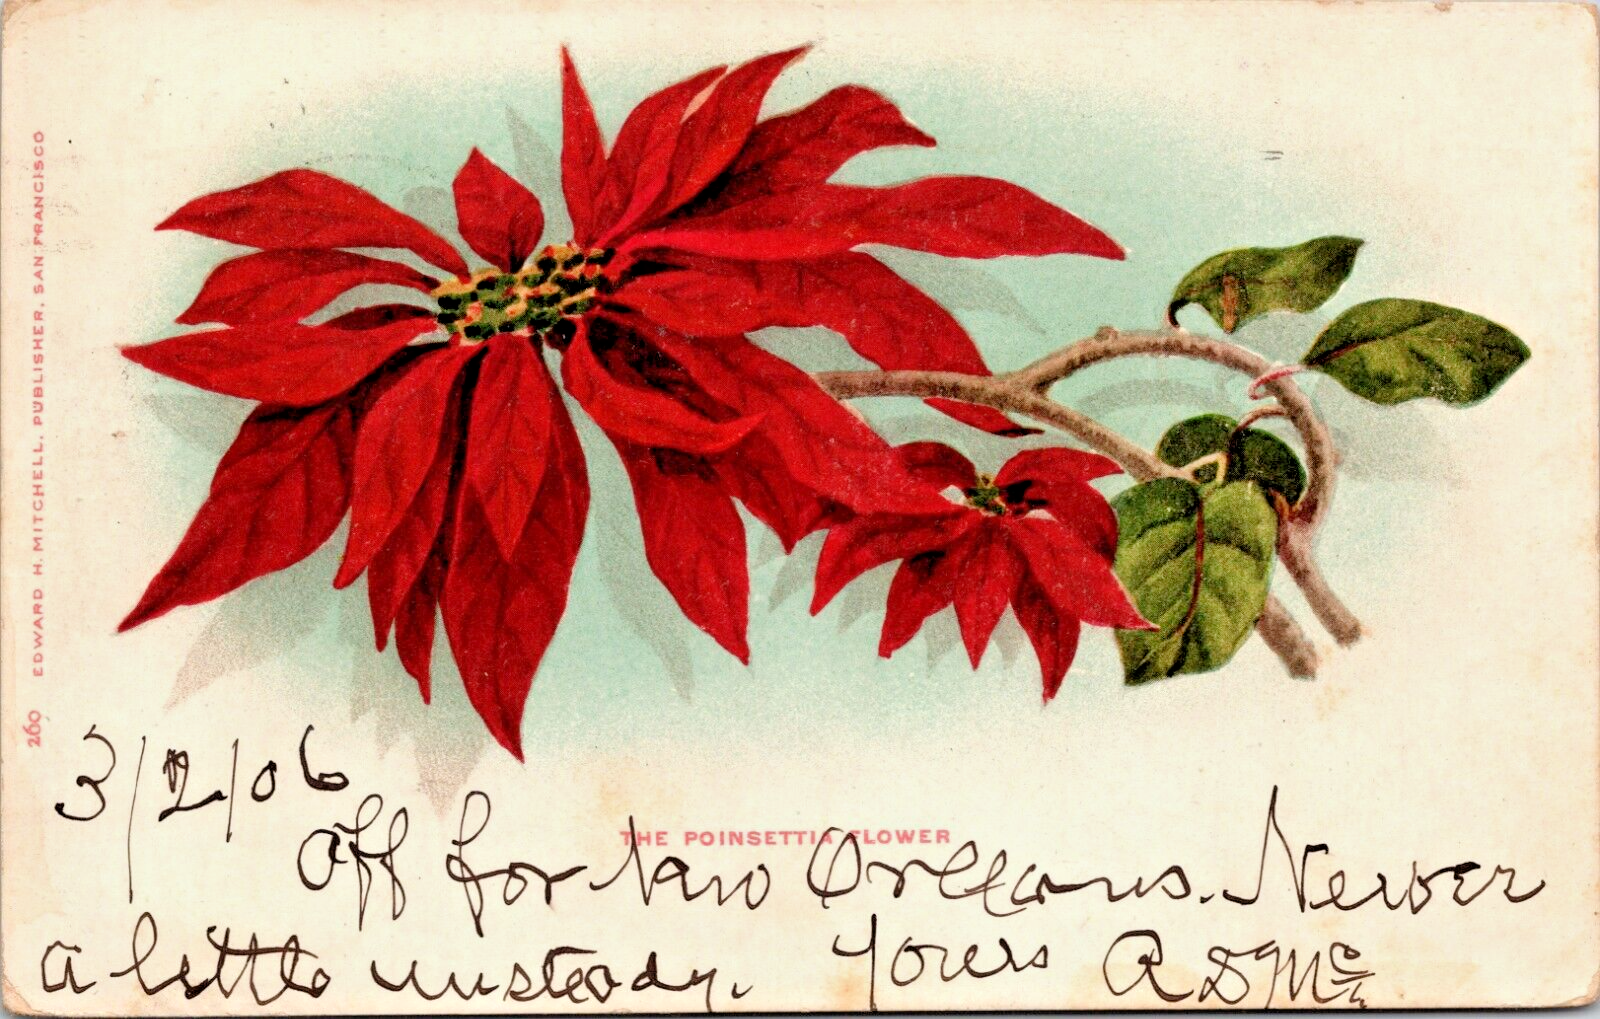 260 EDWARD H. MITCHELL, PUBLISHER, SAN FRANCISCO
3/2/06
THE POINSETTIA FLOWER
Off for New Orleans. Never
a little unsteady. Yours A D Mc